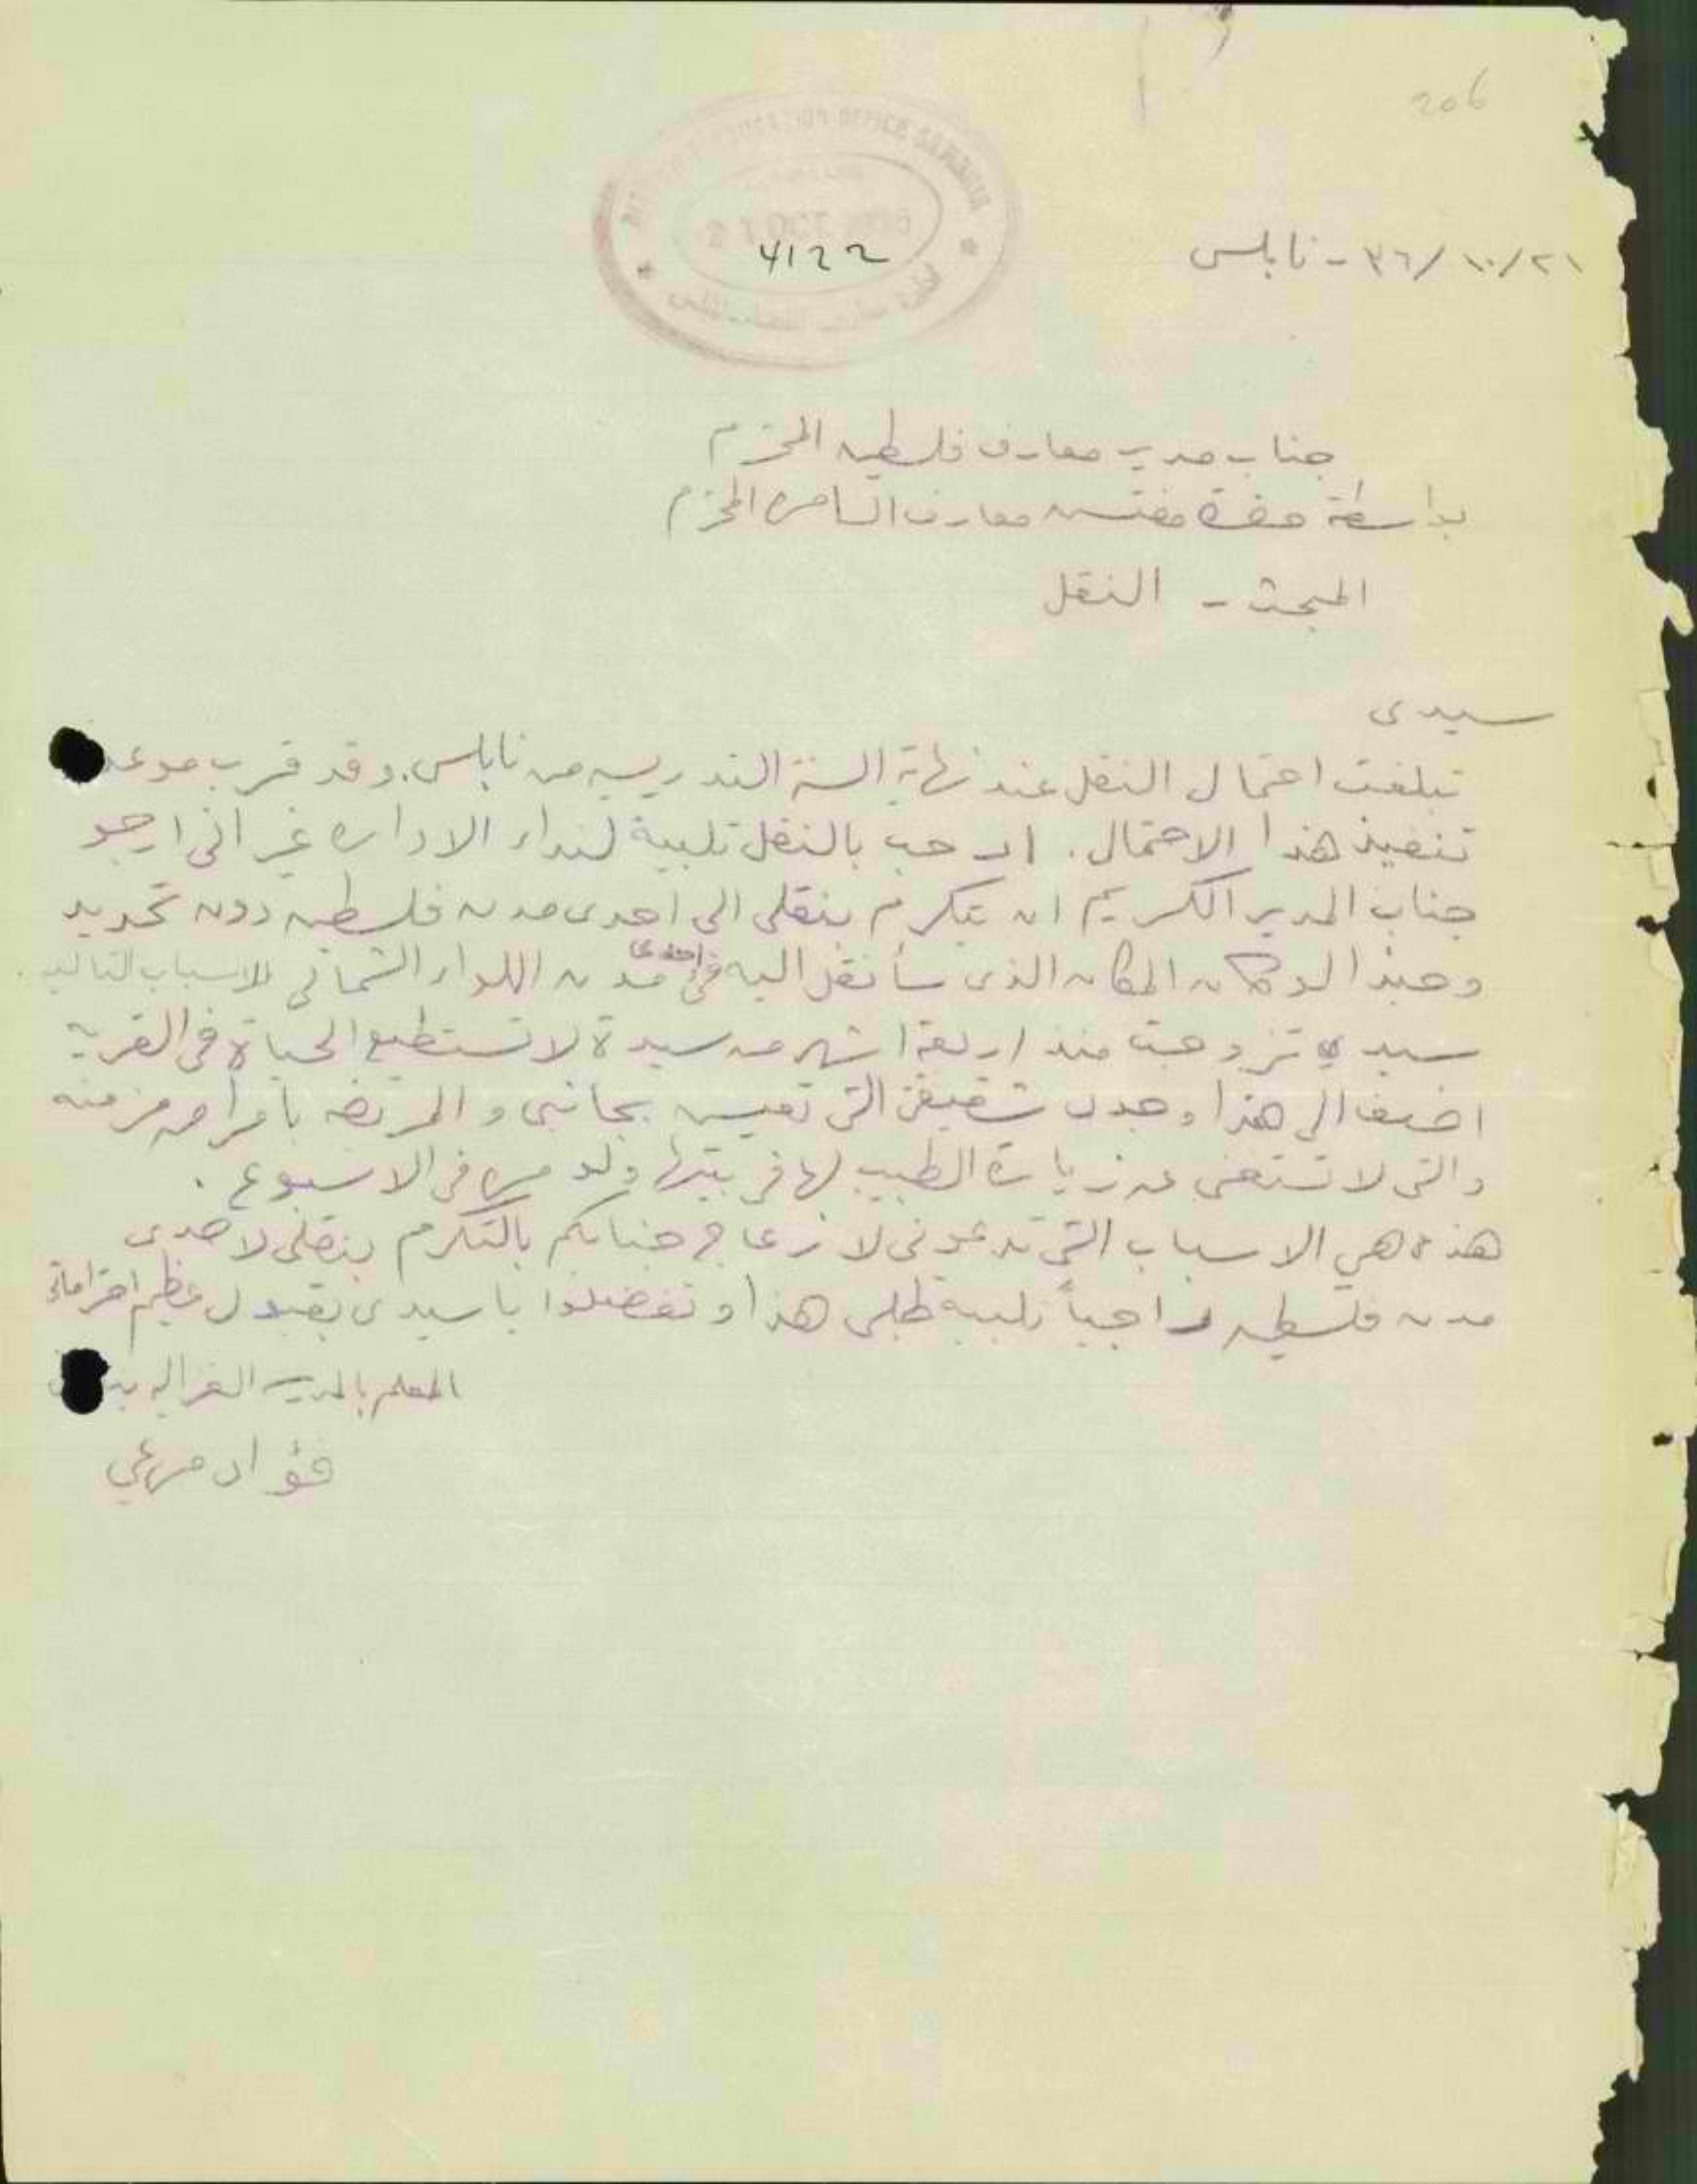 206
EDUCATION OFFICE SAMARIA
4122
٣٦/١٠/٢١ - نابلس
جناب مدير معارف فلسطين المحترم
بواسطة حضرة مفتش معارف السامرة المحترم
المبحث - النقل
سيدى
تبلغت احتمال النقل عند نهاية السنة التدريسيه من نابلس. وقد قرب موعد
تنفيذ هذا الاحتمال. ارحب بالنقل تلبية لنداء الاداره غير انى ارجو
جناب المدير الكريم ان يتكرم بنقلى الى احدى مدن فلسطين دون تحديد
وحبذا لو كان المكان الذى سأنقل اليه فى احدى مدن اللواء الشمالى للاسباب التاليه.
سيدي تزوجت منذ اربعة اشهر من سيدة لا تستطيع الحياة فى القريه
اضف الى هذا وجود شقيقتى التى تعيش بجانبى والمريضه بامراض مزمنه
والتى لا تستغنى عن زيارة الطبيب لها فى بيتها ولو مره فى الاسبوع.
هذه هي الاسباب التى تدعونى لازعاج جنابكم بالتكرم بنقلى لاحدى
مدن فلسطين راجياً تلبية طلبى هذا وتفضلوا يا سيدى بقبول عظيم احتراماتى
المعلم بالمدرسه الغزاليه
فؤاد مرعي